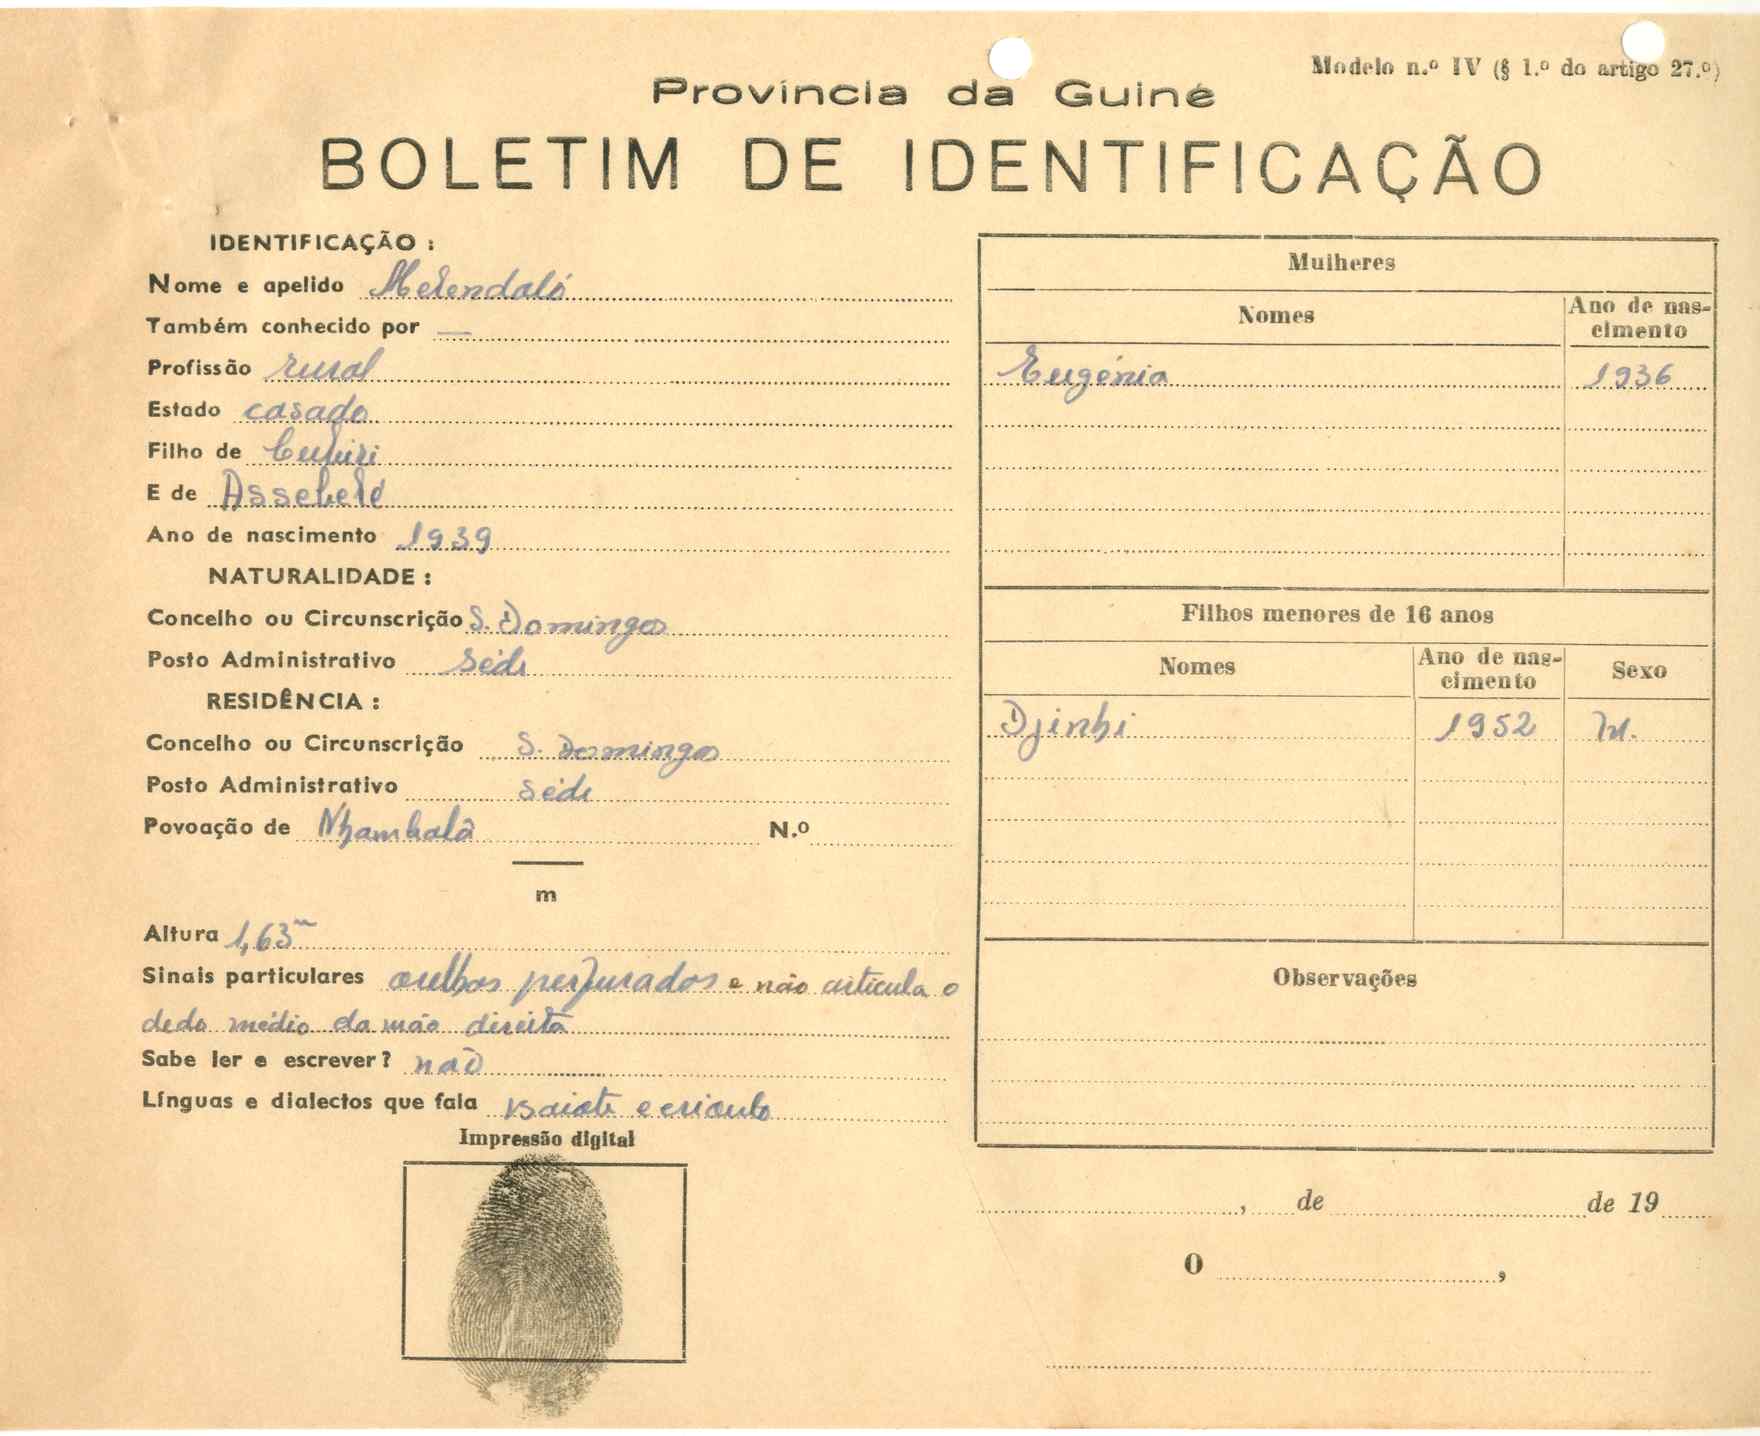 Modelo n.º IV (§ 1.º do artigo 27.º)
Província da Guiné
BOLETIM DE IDENTIFICAÇÃO
IDENTIFICAÇÃO :
Nome e apelido
Também conhecido por —
Profissão rural
Estado casado
Filho de
E de
Ano de nascimento 1939
NATURALIDADE :
Concelho ou Circunscrição S. Domingos
Posto Administrativo Séde
RESIDÊNCIA :
Concelho ou Circunscrição S. Domingos
Posto Administrativo séde
Povoação de Nhambalã N.º
m
Altura 1,63m
Sinais particulares orelhas perfurados e não articula o
dedo médio da mão direita
Sabe ler e escrever? não
Línguas e dialectos que fala baiote e crioulo
Impressão digital
Mulheres
Nomes Ano de nas-
cimento
Eugénia 1936
Filhos menores de 16 anos
Nomes Ano de nas- Sexo
cimento
Djinhi 1952 M.
Observações
, de de 19
O ,